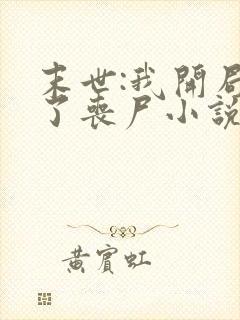 末世:我開局
了喪尸小說
黃賓虹